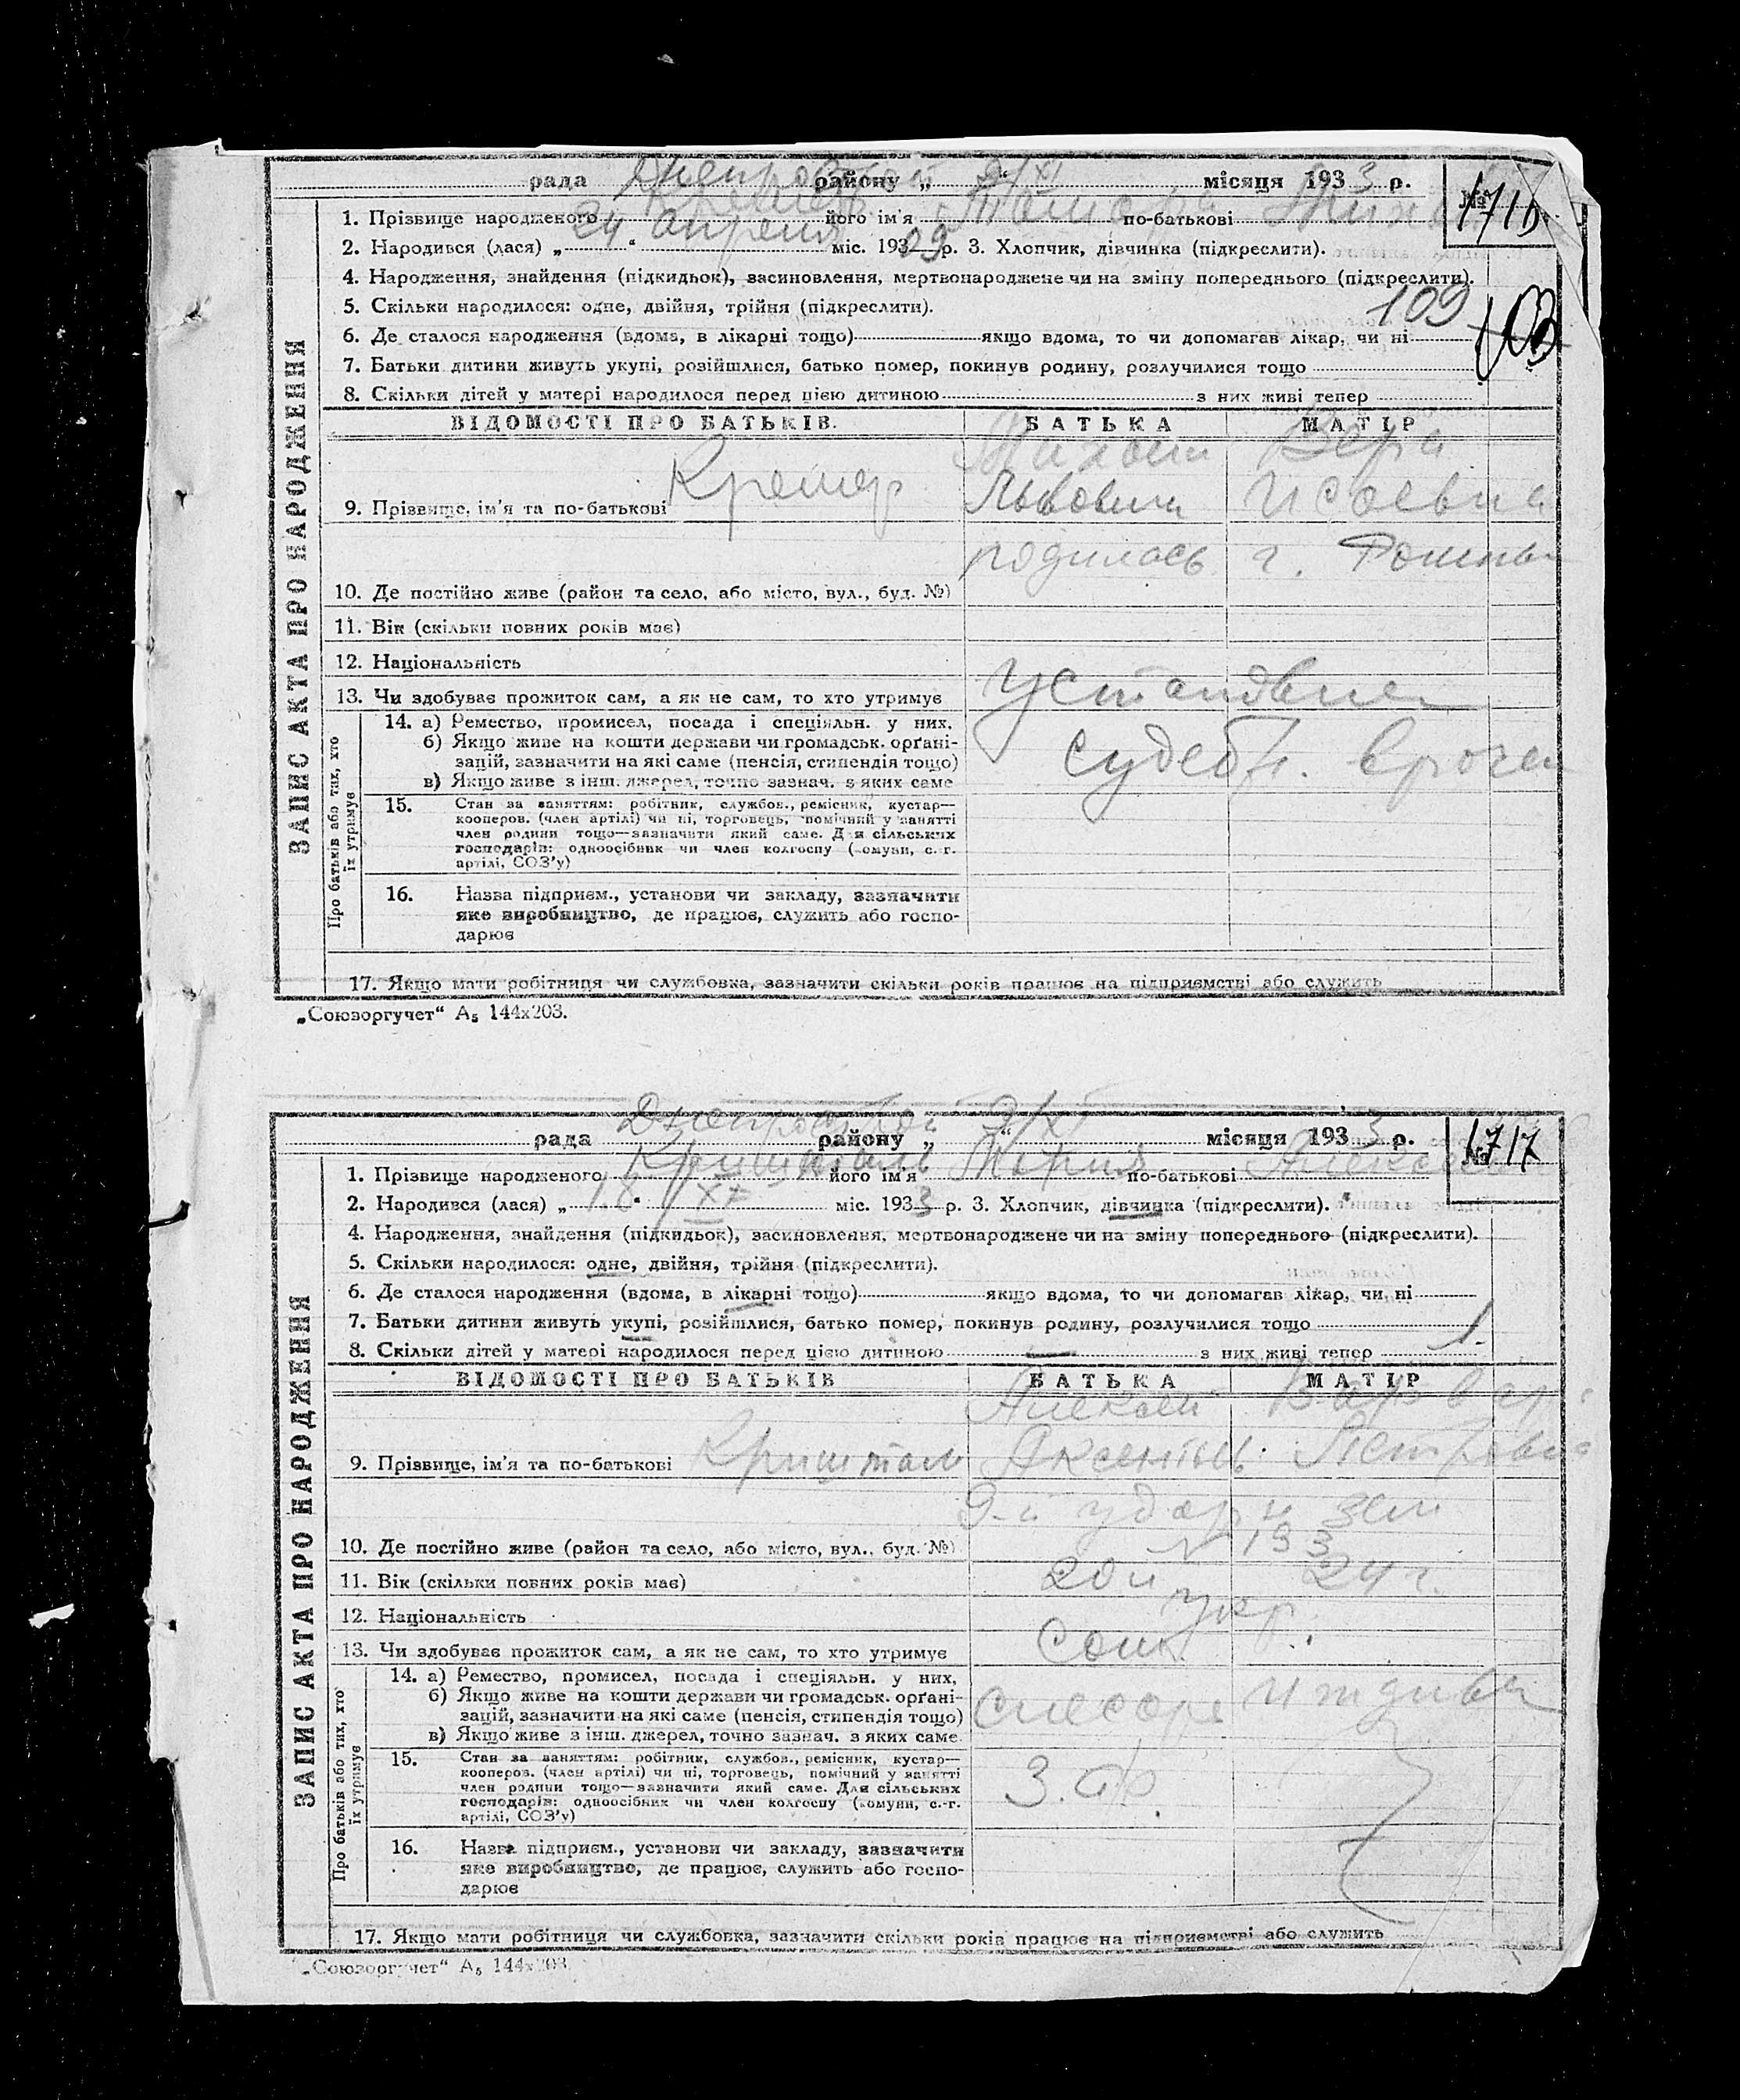 рада Днепрострой району „ 9/XI “ місяця 1933 р.
№ 1716
1. Прізвище народженого Кремер його ім'я Тамара по-батькові
2. Народився (лася) „ 24 “ апреля міс. 1929 р. 3. Хлопчик, дівчинка (підкреслити).
4. Народження, знайдення (підкидьок), засиновлення, мертвонароджене чи на зміну попереднього (підкреслити).
5. Скільки народилося: одне, двійня, трійня (підкреслити).
109
6. Де сталося народження (вдома, в лікарні тощо) якщо вдома, то чи допомагав лікар, чи ні
7. Батьки дитини живуть укупі, розійшлися, батько помер, покинув родину, розлучилися тощо
8. Скільки дітей у матері народилося перед цією дитиною з них живі тепер
ЗАПИС АКТА ПРО НАРОДЖЕННЯ
ВІДОМОСТІ ПРО БАТЬКІВ. БАТЬКА МАТІР
Вера
9. Прізвище, ім'я та по-батькові Кремер Львович Исаевна
родилась г. Ромны
10. Де постійно живе (район та село, або місто, вул., буд. №)
11. Вік (скільки повних років має)
12. Національність
13. Чи здобуває прожиток сам, а як не сам, то хто утримує
Про батьків або тих, хто їх утримує
14. а) Ремество, промисел, посада і спеціяльн. у них.
б) Якщо живе на кошти держави чи громадськ. орґані-
зацій, зазначити на які саме (пенсія, стипендія тощо)
судебн.
в) Якщо живе з інш. джерел, точно зазнач. з яких саме
15. Стан за заняттям: робітник, службов., ремісник, кустар—
кооперов. (член артілі) чи ні, торговець, помічний у занятті
член родини тощо—зазначити який саме. Для сільських
господарів: одноосібник чи член колгоспу (комуни, с.-г.
артілі, СОЗ'у)
16. Назва підприєм., установи чи закладу, зазначити
яке виробництво, де працює, служить або госпо-
дарює
17. Якщо мати робітниця чи службовка, зазначити скільки років працює на підприємстві або служить
„Союзоргучет“ А₅ 144х203.
рада Днепрострой району „ 9/XI “ місяця 1933 р.
№ 1717
1. Прізвище народженого Кришталь його ім'я Мария по-батькові
2. Народився (лася) „ “ міс. 1933 р. 3. Хлопчик, дівчинка (підкреслити).
4. Народження, знайдення (підкидьок), засиновлення, мертвонароджене чи на зміну попереднього (підкреслити).
5. Скільки народилося: одне, двійня, трійня (підкреслити).
6. Де сталося народження (вдома, в лікарні тощо) якщо вдома, то чи допомагав лікар, чи ні
7. Батьки дитини живуть укупі, розійшлися, батько помер, покинув родину, розлучилися тощо
8. Скільки дітей у матері народилося перед цією дитиною — з них живі тепер 1.
ЗАПИС АКТА ПРО НАРОДЖЕННЯ
ВІДОМОСТІ ПРО БАТЬКІВ БАТЬКА МАТІР
Алексей Варвара
9. Прізвище, ім'я та по-батькові Кришталь Аксентьев. Петровна
10. Де постійно живе (район та село, або місто, вул., буд. №) 193
11. Вік (скільки повних років має) 24 г.
12. Національність укр.
13. Чи здобуває прожиток сам, а як не сам, то хто утримує
Про батьків або тих, хто їх утримує
14. а) Ремество, промисел, посада і спеціяльн. у них,
б) Якщо живе на кошти держави чи громадськ. орґані-
зацій, зазначити на які саме (пенсія, стипендія тощо) слесарь
в) Якщо живе з інш. джерел, точно зазнач. з яких саме.
15. Стан за заняттям: робітник, службов., ремісник, кустар—
кооперов. (член артілі) чи ні, торговець, помічний у занятті
член родини тощо—зазначити який саме. Для сільських
господарів: одноосібник чи член колгоспу (комуни, с.-г.
артілі, СОЗ'у)
16. Назва підприєм., установи чи закладу, зазначити
яке виробництво, де працює, служить або госпо-
дарює
17. Якщо мати робітниця чи службовка, зазначити скільки років працює на підприємстві або служить
„Союзоргучет“ А₅ 144х203